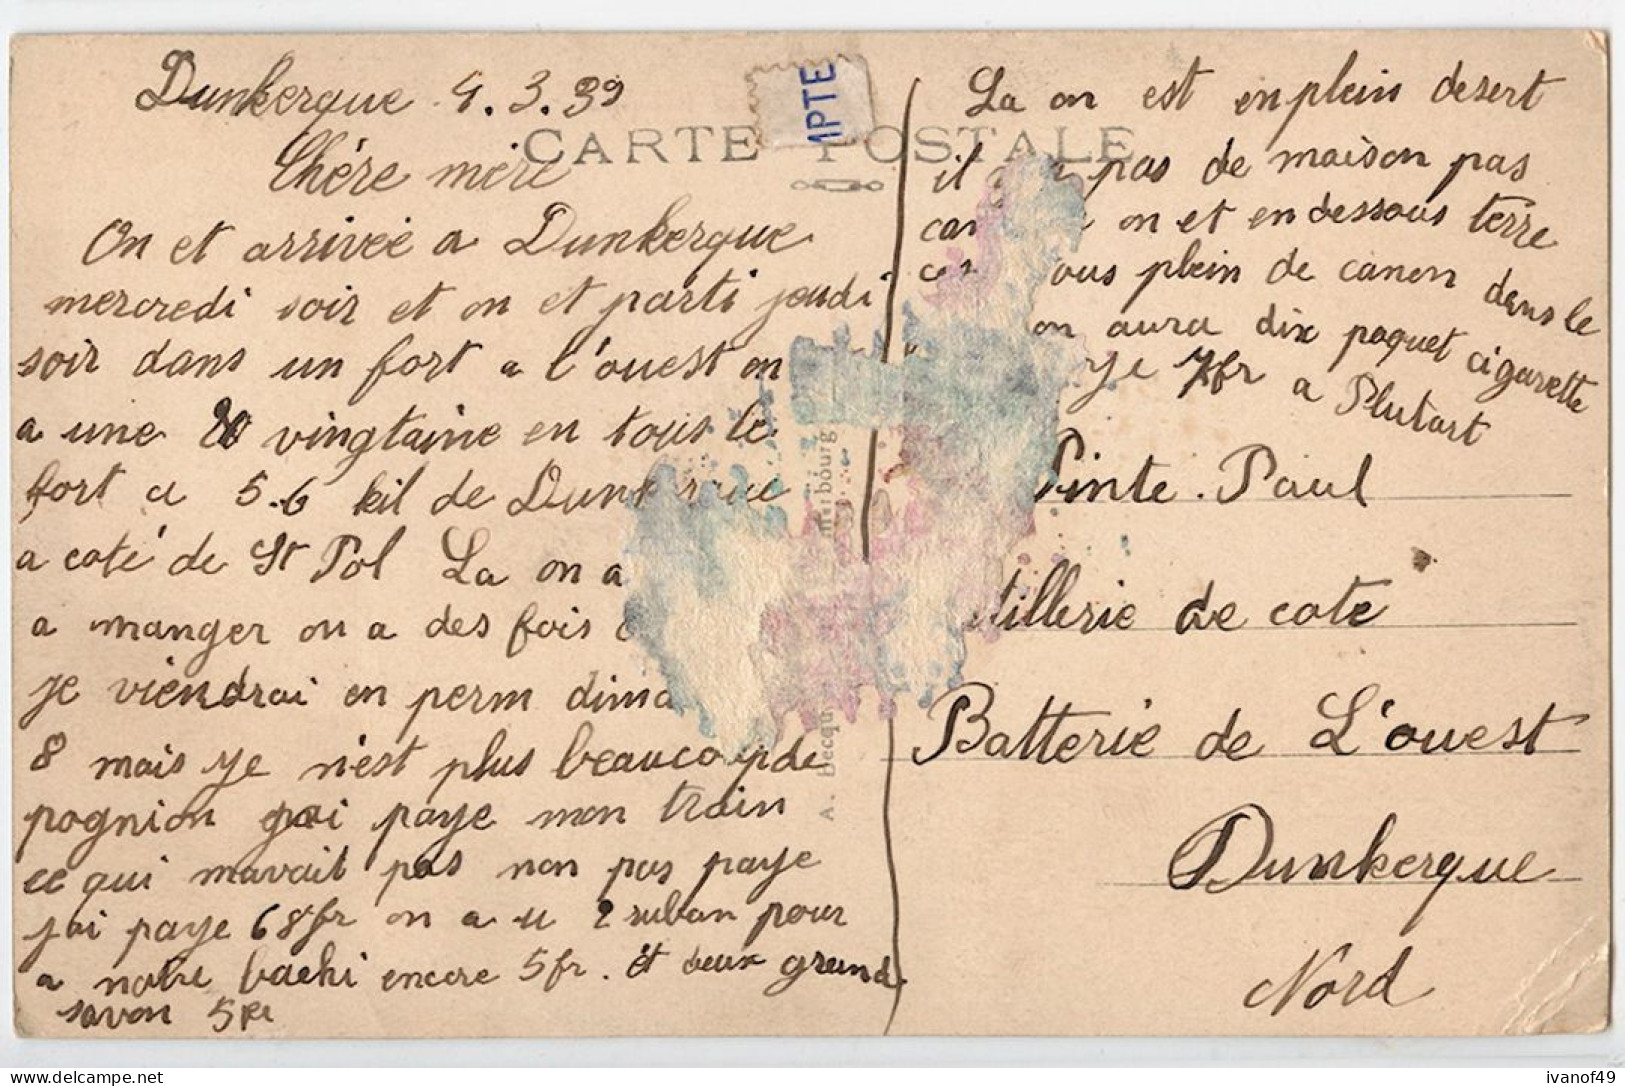 Dunkerque 4.3.39
CARTE POSTALE
MPTE
Chére mère
On et arrivée a Dunkerque
mercredi soir et on et parti jeudi
soir dans un fort a l'ouest on
a une vingtaine en tous le
fort a 5.6 kil de Dunkerque
a coté de St Pol La on a
a manger on a des fois
je viendrai en perm dima
8 mais je n'est plus beaucoup de
pognion jai paye mon train
ce qui mavait pas non pas paye
jai paye 68fr on a u 2 ruban pour
a notre bachi encore 5fr. et deux grand
savon 5fr
La on est en plein desert
il pas de maison pas
on et en dessous terre
ous plein de canon dans le
on aura dix paquet cigarette
ye 7fr a Plutart
Pinte. Paul
tillerie de cote
Batterie de L'ouest
Dunkerque
Nord
A. Becqu
merbourg
ivanof49